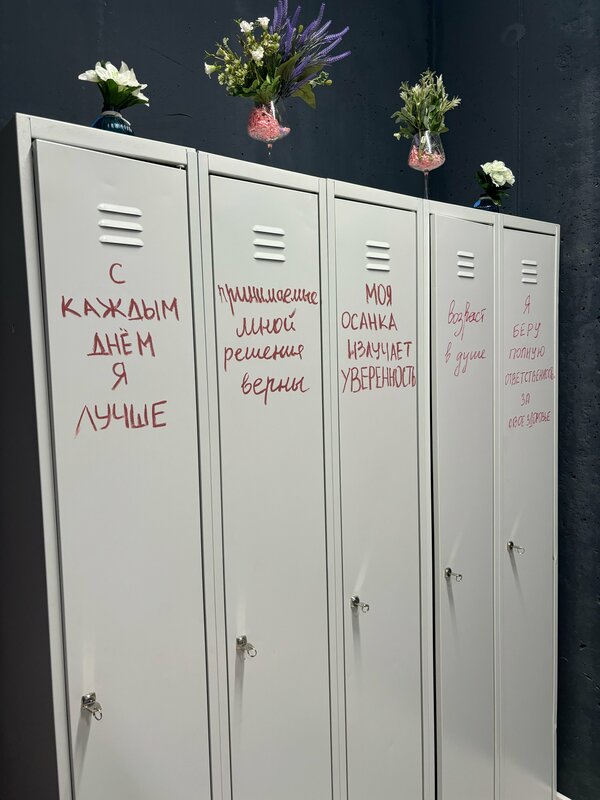 С
КАЖДЫМ
ДНЁМ
Я
ЛУЧШЕ
принимаемые
мной
решения
верны
МОЯ
ОСАНКА
ИЗЛУЧАЕТ
УВЕРЕННОСТЬ
возраст
в душе
Я
БЕРУ
ПОЛНУЮ
ОТВЕТСТВЕННОСТЬ
ЗА
СВОЕ ЗДОРОВЬЕ